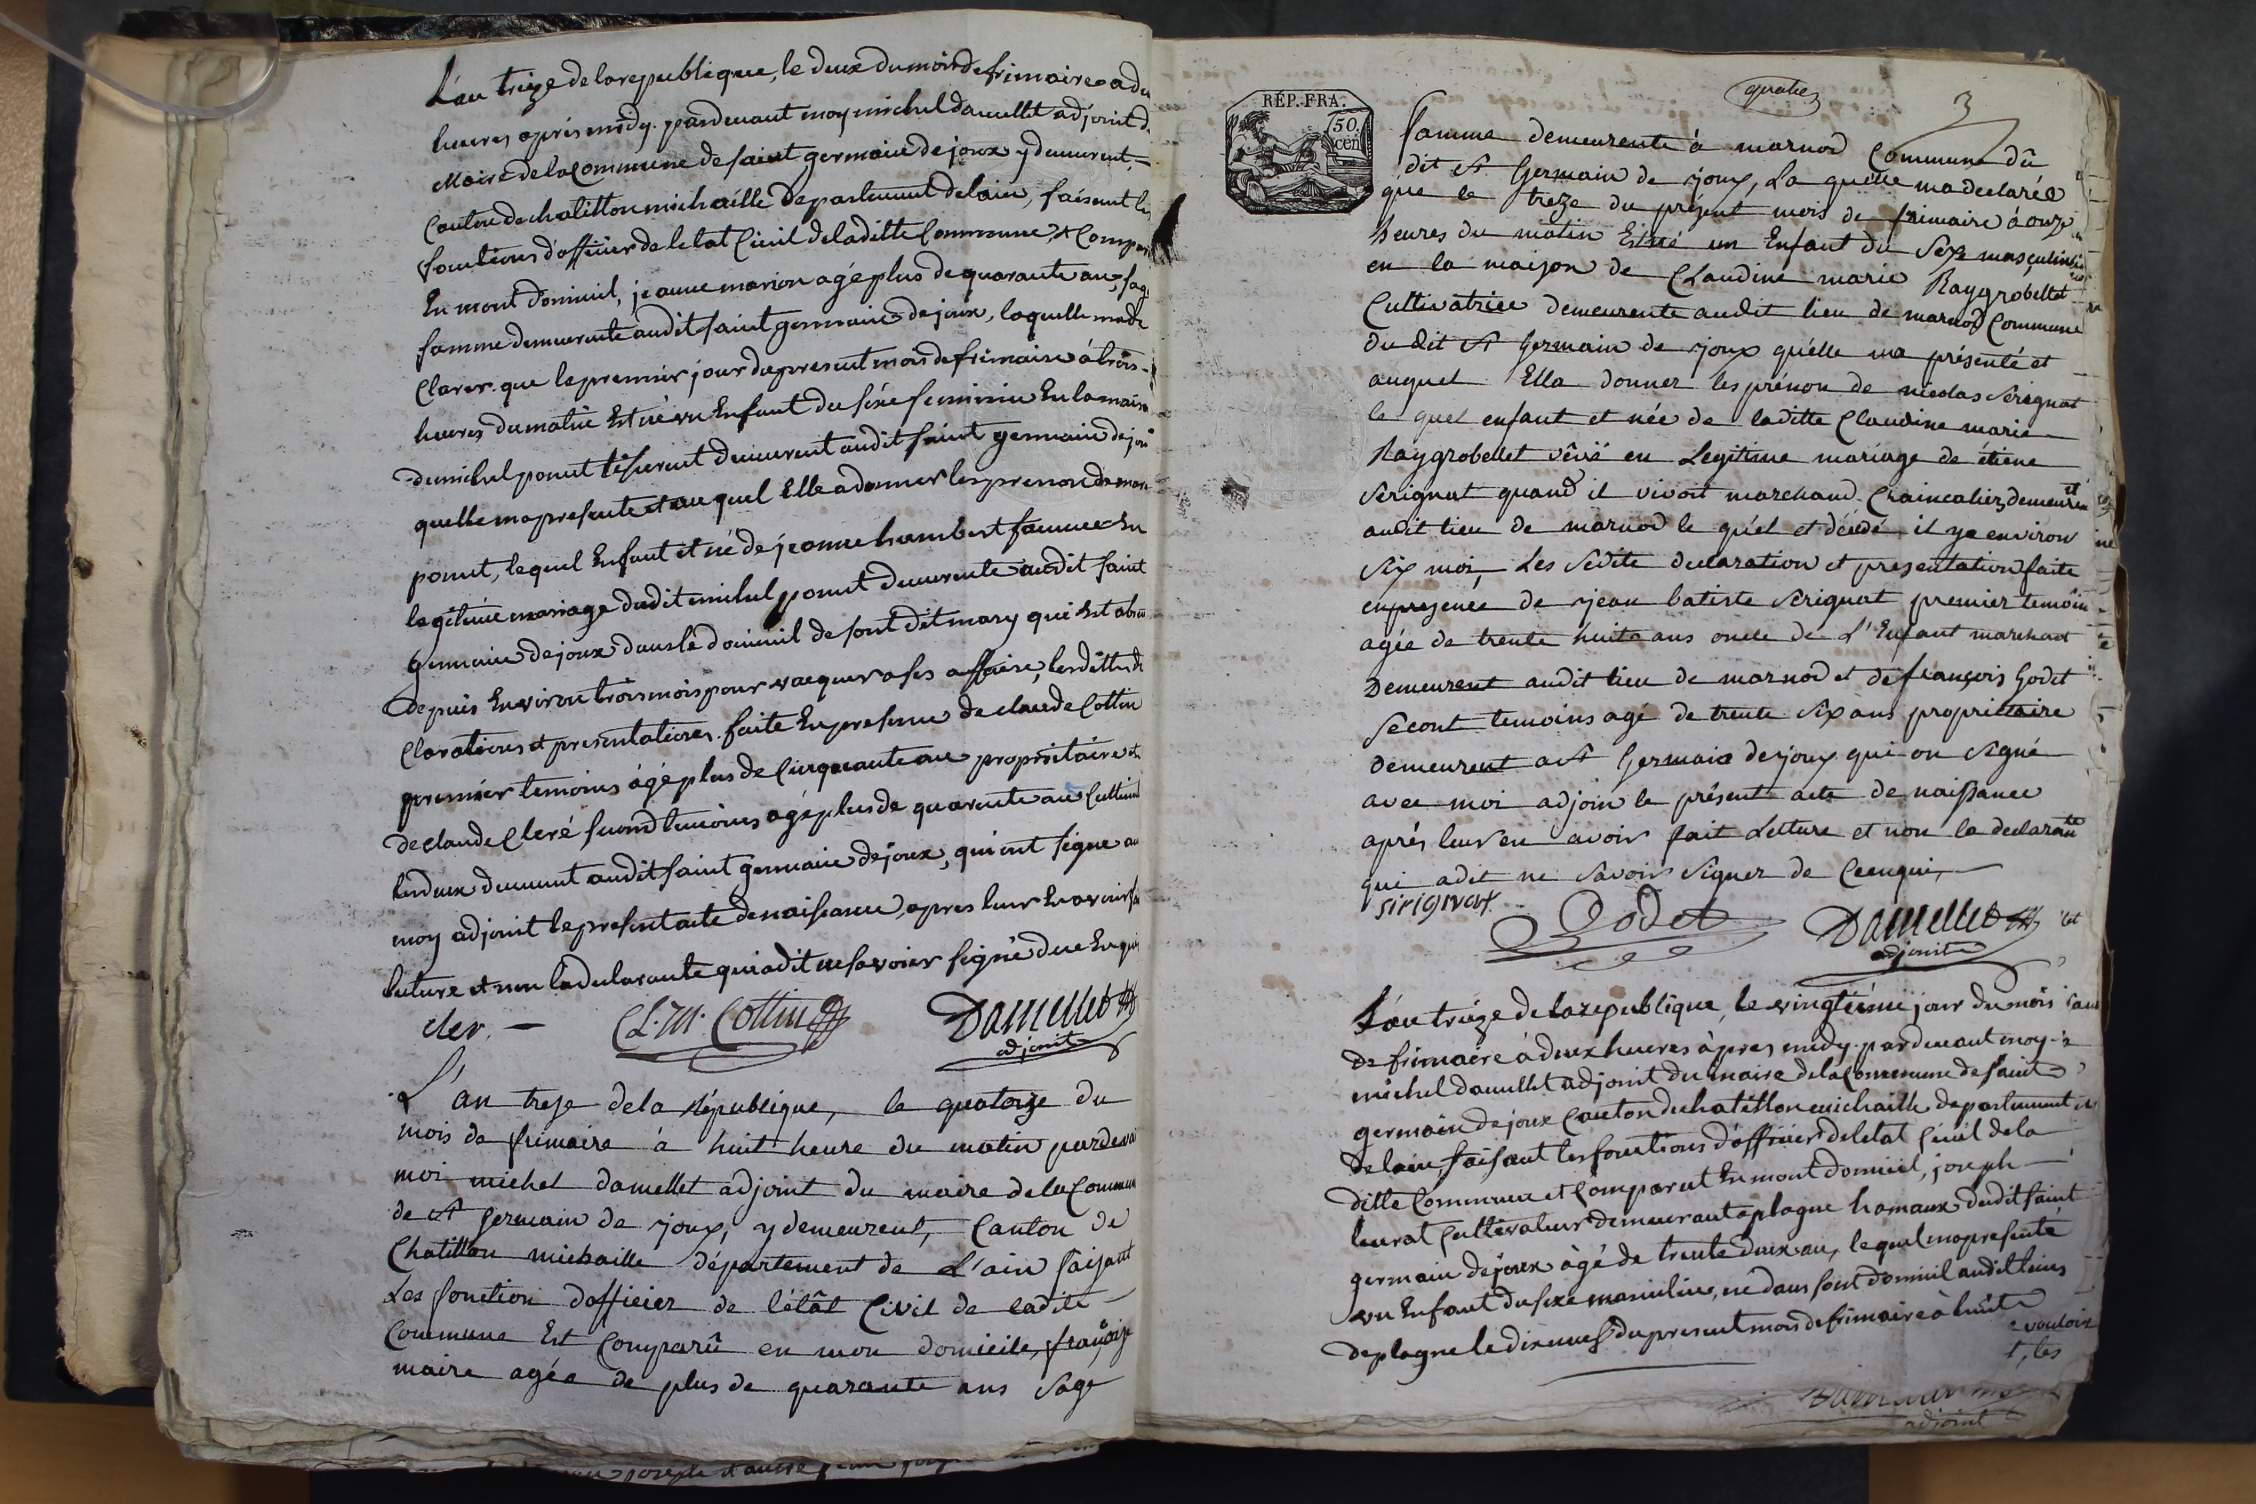 L'an treize de la republique, le deux du mois de frimaire a deu
heures après midy. pardevant moy michel damellet adjoint d
Maire de la Commune de saint germain de joux y demeurent,
Canton de chatillon michaille departement de lain, faisent les
fonctions d'officier de letat Civil de laditte Commune, et Compar
En mont domicil, jeanne marion agé plus de quarante ans, sag
famme demeurente audit saint germain de joux, laquelle ma de
Clarer. que le premier jour du present mois de frimaire à trois
heures du matin Est né un Enfant du sexe feminin En la maison
de michel ponut demeurent audit saint germain de joux
quelle ma presente et au quel Elle a donner les prenom de mari
ponut, lequel Enfant et né de jeanne humbert famme En
legitime mariage dudit michel ponut demeurente audit saint
germain de joux dans le domicil de sont dit mary qui Est absen
depuis Environ trois mois pour vacquer a ses affaire, lesdittes de
Clarations et presentations faite En presence de claude Cottin
premier temoins agé plus de Cinquante ans propriétaire et
de claude Cleré second temoins agé plus de quarente ans Cultiva
les deux demeurent audit saint germain de joux, qui ont signe av
moy adjoint le present acte de naissance, apres leur En avoir fai
lecture et non la declarante qui a dit ne savoir signé de ce Enqui
cler. — CL. M. Cottin Damellet
adjoint
L'an treze de la république, le quatorze du
mois de frimaire à huit heure du matin pardevan
moi michel damellet adjoint du maire de la Commune
de St germain de joux, y demeurent, Canton de
Chatillon michaille département de L'ain faisant
Les fonction d'officier de l'étât Civil de ladite
Commune Est Comparû en mon domicile, françoise
maire agée de plus de quarante ans sage
quatre
3
RÉP. FRA.
50.
cen
famme demeurente à marnod Commune dû
dit St Germain de joux, La quelle ma declarée
que le treze du présent mois de frimaire à onze
heures du matin Est né un Enfant du sexe masculin
en la maison de Claudine marie Raygrobellet
Cultivatrice demeurente audit lieu de marnod Commune
du dit St Germain de joux qu'elle ma présenté et
auquel Ella donner les prénon de nicolas Serignat
le quel enfant et née de laditte Claudine marie
Raygrobellet vêvë en Legitime mariage de étiene
Serignat quand il vivoit marchand Claincalier demeurent
audit lieu de marnod le quel et décédé il ya environ
six moi, Les sedite declaration et presentation faite
en presence de jean batiste Serignat premier temoin
agée de trente huit ans oncle de L'Enfant marchant
Demeurent audit lieu de marnod et de françois Godet
secont temoins agé de trente six ans propriettaire
Demeurent a St Germain de joux qui on signé
avec moi adjoin le présent acte de naissance
aprés leur en avoir fait Letture et non la declarante
qui adit ne savoir signer de Ceenquis,
sirignat Godet Damellet
adjoint
L'an treize de la republique, le vingtiéme jour du mois
de frimaire à deux heures àpres midy. pardevant moy
michel damellet adjoint du maire de la Commune de saint
germain de joux Canton de chatillon michaille departement
de lain, faisant les fonctions d'officier de letat Civil de la
ditte Commune et Comparut En mont domicil, joseph
leurat Cultivateur demeurant a plagne hamaux dudit saint
germain de joux àgé de trente deux an, lequel ma presenté
un Enfant du sexe masculin, ne dans sont domicil audit lieus
de plagne le dix neuf du present mois de frimaire à huit
vouloir
t, les
adjoint